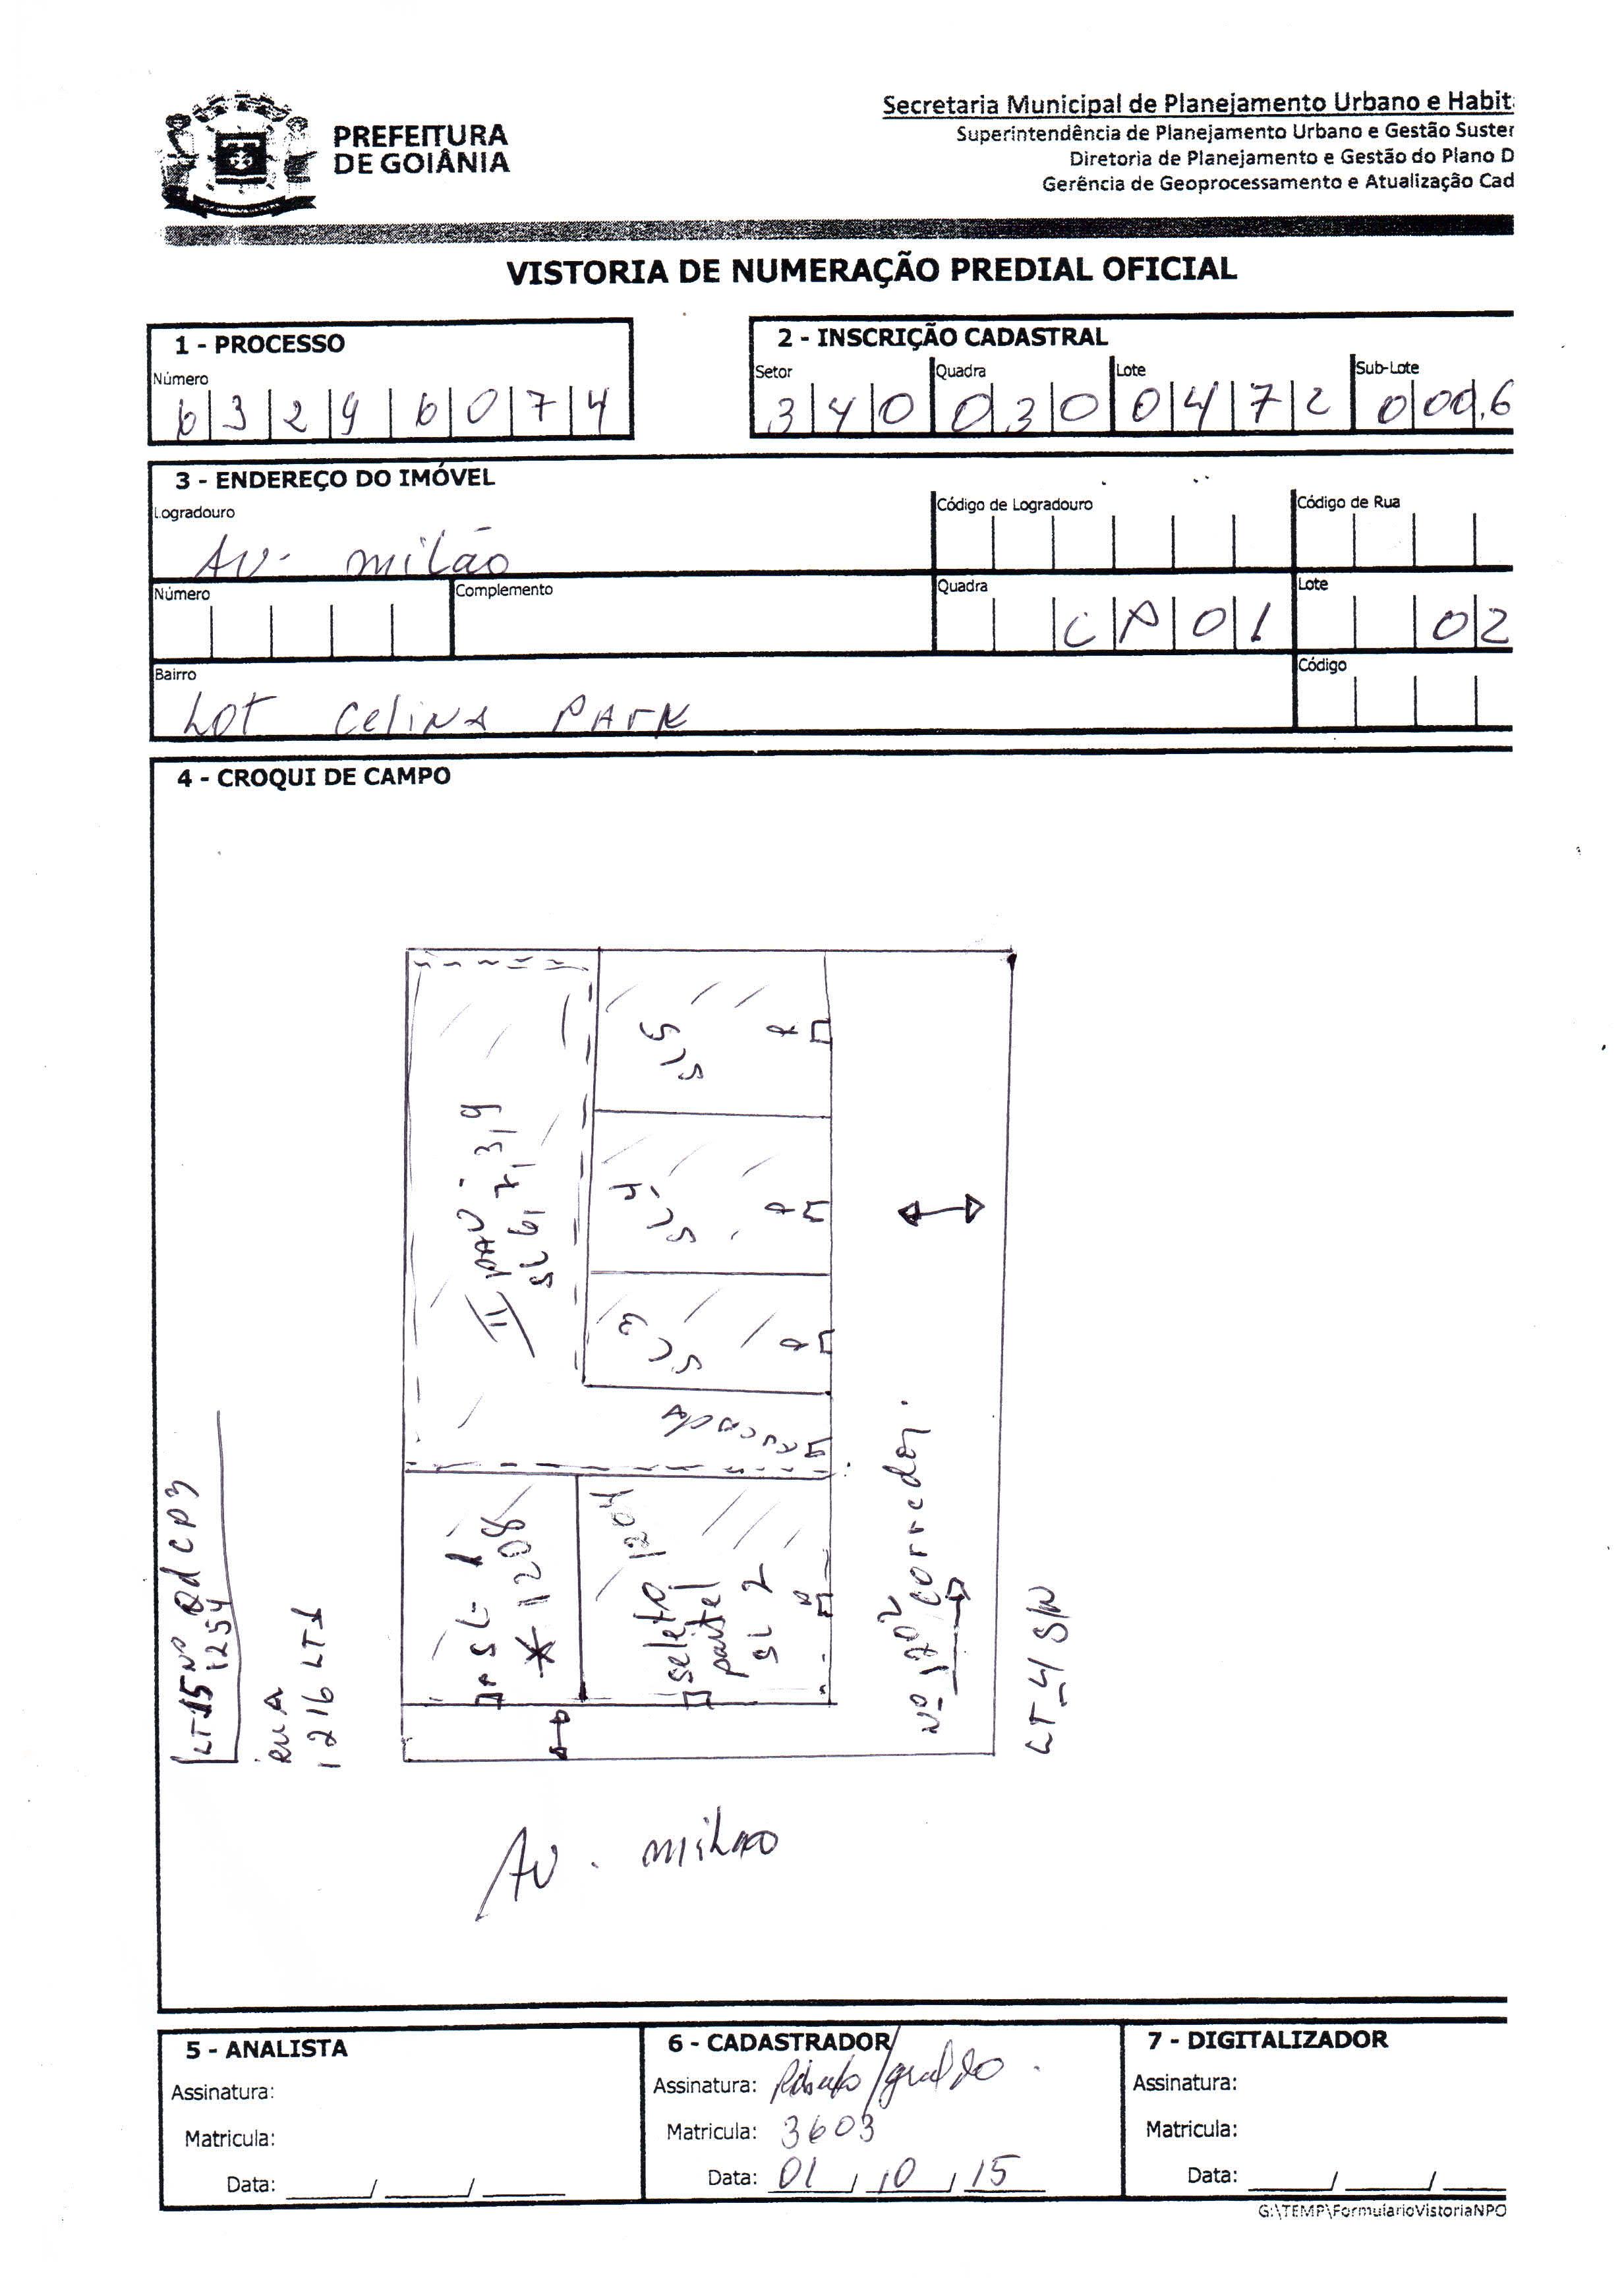 PREFEITURA
DE GOIÂNIA
Secretaria Municipal de Planejamento Urbano e Habit
Superintendência de Planejamento Urbano e Gestão Suster
Diretoria de Planejamento e Gestão do Plano D
Gerência de Geoprocessamento e Atualização Cad
VISTORIA DE NUMERAÇÃO PREDIAL OFICIAL
1 - PROCESSO
Número
6 3 2 9 6 0 7 4
2 - INSCRIÇÃO CADASTRAL
Setor Quadra Lote Sub-Lote
3 4 0 0 3 0 0 4 7 2 0 0 0 6
3 - ENDEREÇO DO IMÓVEL
Logradouro Código de Logradouro Código de Rua
AV- milão
Número Complemento Quadra Lote
C P 0 1 0 2
Bairro Código
LOT Celina PArk
4 - CROQUI DE CAMPO
SL 5
SL 4
SL 3
II PAV
SL 6, 7,
SL 1
* 1208
1204
seleto
pastel
SL 2
Nº 1202
corredor
LT 15 Nº Qd CP3
1254
RUA
1216 LT 1
LT-4 S/N
AV. milao
5 - ANALISTA
Assinatura:
Matricula:
Data: / /
6 - CADASTRADOR
Assinatura:
Matricula: 3603
Data: 01 / 10 / 15
7 - DIGITALIZADOR
Assinatura:
Matricula:
Data: / /
G:\TEMP\FormularioVistoriaNPO